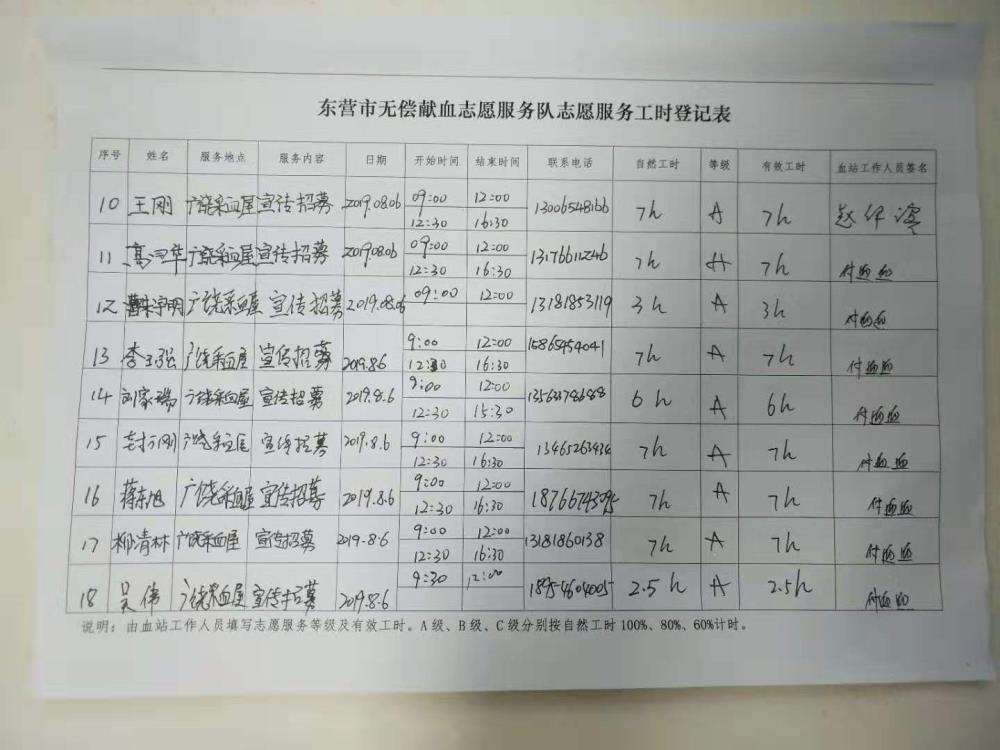 东营市无偿献血志愿服务队志愿服务工时登记表
序号 姓名 服务地点 服务内容 日期 开始时间 结束时间 联系电话 自然工时 等级 有效工时 血站工作人员签名
10 王刚 广饶采血屋 宣传招募 2019.08.06 09:00 12:00 13006548166 7h A 7h
12:30 16:30
11 广饶采血屋 宣传招募 2019.08.06 09:00 12:00 13176611246 7h A 7h
12:30 16:30
12 广饶采血屋 宣传招募 2019.08.06 09:00 12:00 13181853119 3h A 3h
13 李玉强 广饶采血屋 宣传招募 2019.8.6 9:00 12:00 15865454041 7h A 7h
12:30 16:30
14 刘家瑞 广饶采血屋 宣传招募 2019.8.6 9:00 12:00 6h A 6h
12:30 15:30
15 宣传招募 2019.8.6 9:00 12:00 13465263434 7h A 7h
12:30 16:30
16 蒋东旭 广饶采血屋 宣传招募 2019.8.6 9:00 12:00 7h A 7h
12:30 16:30
17 柳清林 广饶采血屋 宣传招募 2019.8.6 9:00 12:00 13181860138 7h A 7h
12:30 16:30
18 吴伟 广饶采血屋 宣传招募 2019.8.6 9:30 12:00 18954604005 2.5h A 2.5h
说明：由血站工作人员填写志愿服务等级及有效工时。A级、B级、C级分别按自然工时100%、80%、60%计时。